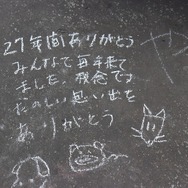 27年間ありがとう
みんなで毎年来て
ました。残念です
たのしい思い出を
ありがとう
や